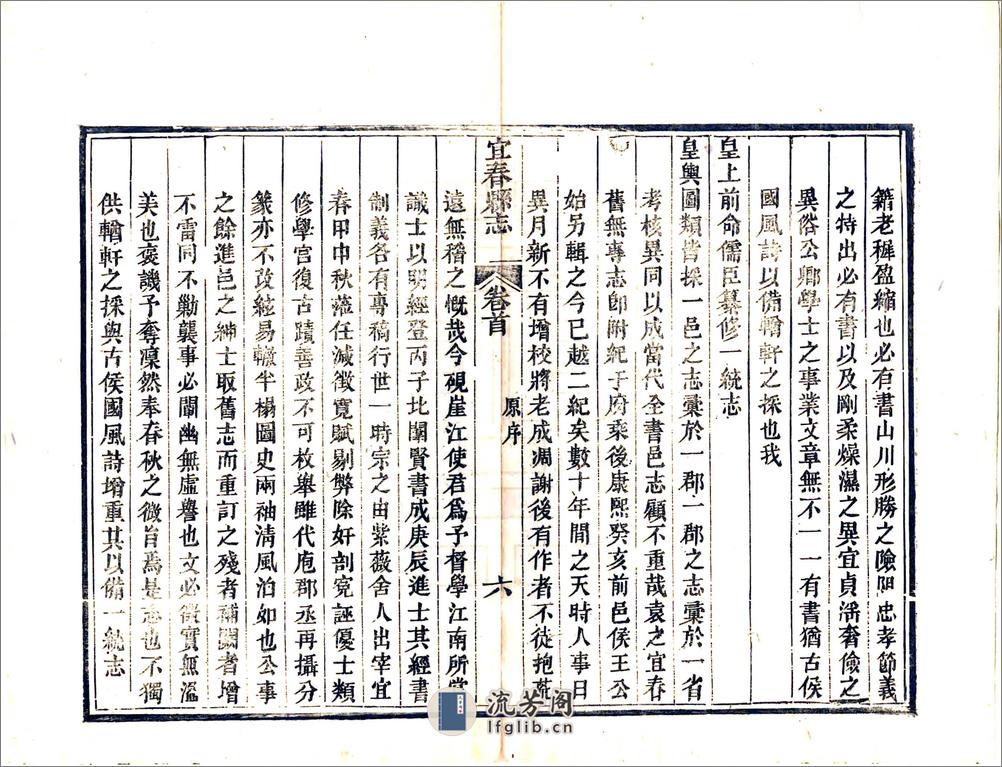 籍老稺盈縮也必有書山川形勝之險阻忠孝節義
之特出必有書以及剛柔燥濕之異宜貞淫奢儉之
異俗公卿學士之事業文章無不一一有書猶古侯
國風詩以備輶軒之採也我
皇上前命儒臣纂修一統志
皇輿圖類皆採一邑之志彙於一郡一郡之志彙於一省
考核異同以成當代全書邑志顧不重哉袁之宜春
舊無專志卽附紀于府乘後康熙癸亥前邑侯王公
始另輯之今已越二紀矣數十年間之天時人事日
異月新不有增校將老成凋謝後有作者不徒抱荒
宜春縣志 卷首 原序 六
遠無稽之慨哉今硯崖江使君爲予督學江南所賞
識士以明經登丙子北闈賢書成庚辰進士其經書
制義各有專稿行世一時宗之由紫薇舍人出宰宜
春甲申秋蒞任減徵寬賦剔弊除奸剖寃誣優士類
修學宮復古蹟善政不可枚舉雖代庖郡丞再攝分
篆亦不改絃易轍半榻圖史兩袖淸風泊如也公事
之餘進邑之紳士取舊志而重訂之殘者補闕者增
不雷同不勦襲事必闡幽無虛譽也文必徵實無溢
美也褒譏予奪凜然奉春秋之微旨焉是志也不獨
供輶軒之採與古侯國風詩增重其以備一統志
流芳阁
lfglib.cn